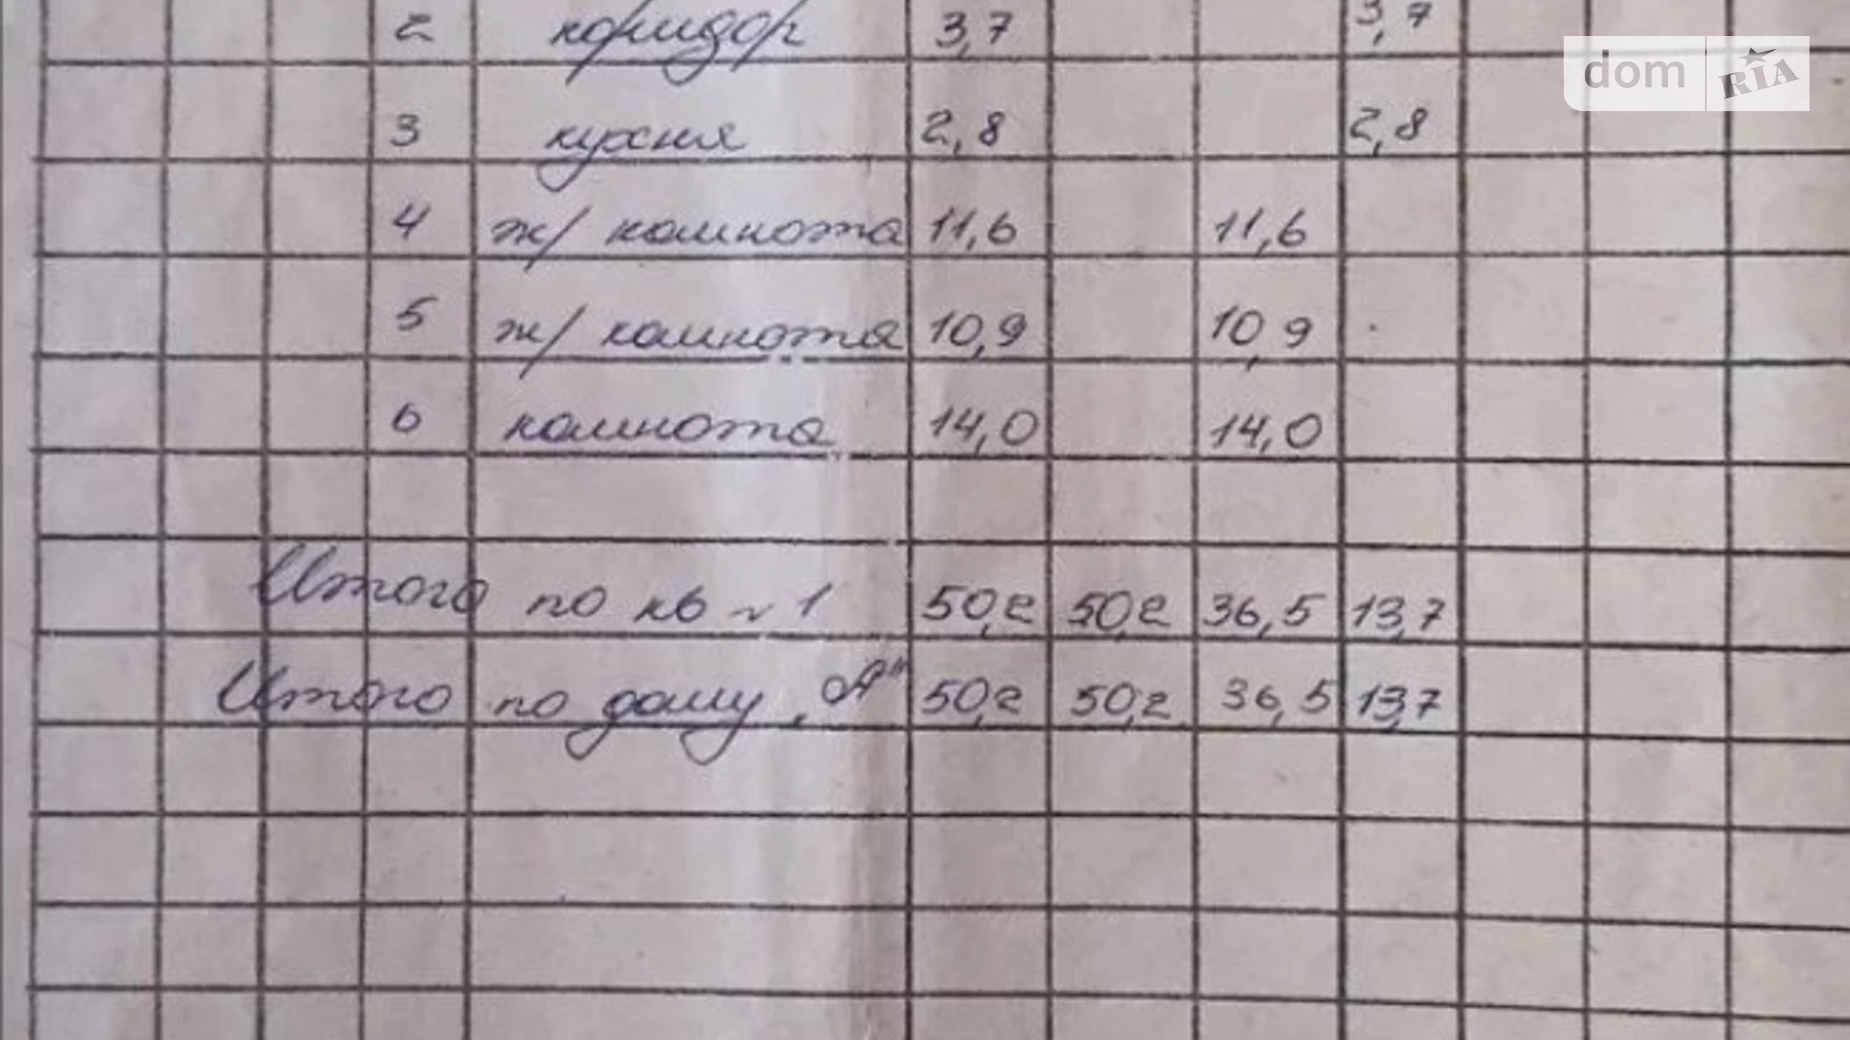 2 коридор 3,7 3,7
dom RIA
3 кухня 2,8 2,8
4 ж/комнота 11,6 11,6
5 ж/комнота 10,9 10,9
6 комнота 14,0 14,0
Итого по кв №1 50,2 50,2 36,5 13,7
Итого по дому „А" 50,2 50,2 36,5 13,7